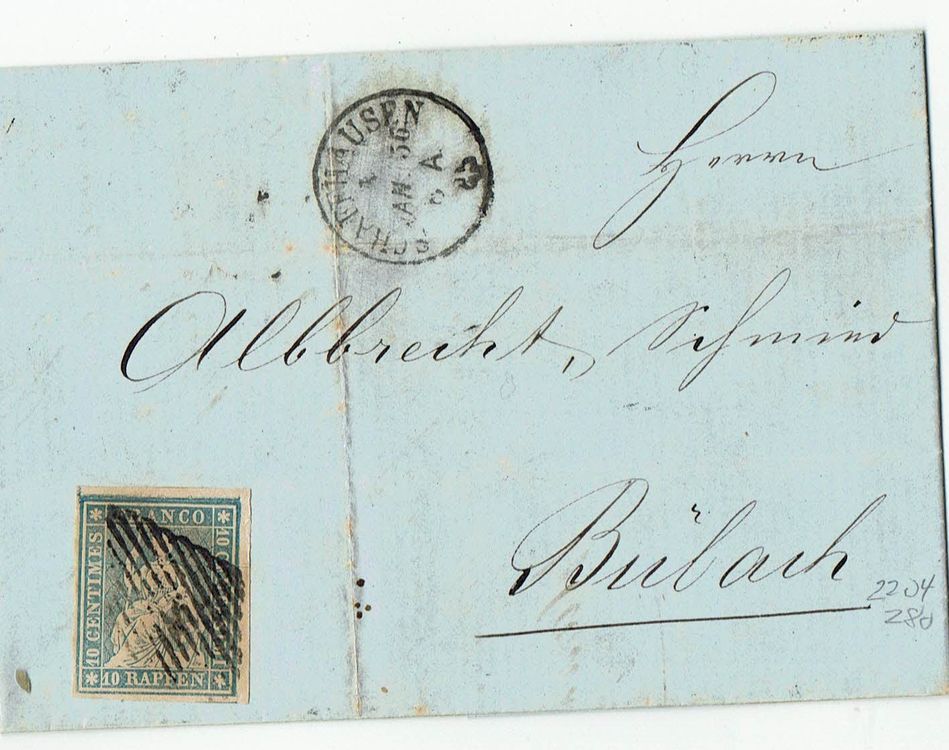 SCHAFFHAUSEN
JAN 56
A
Herrn
Albbrecht, Schmied
Bülach
2204
280
FRANCO
10 CENTIMES
10 RAPPEN